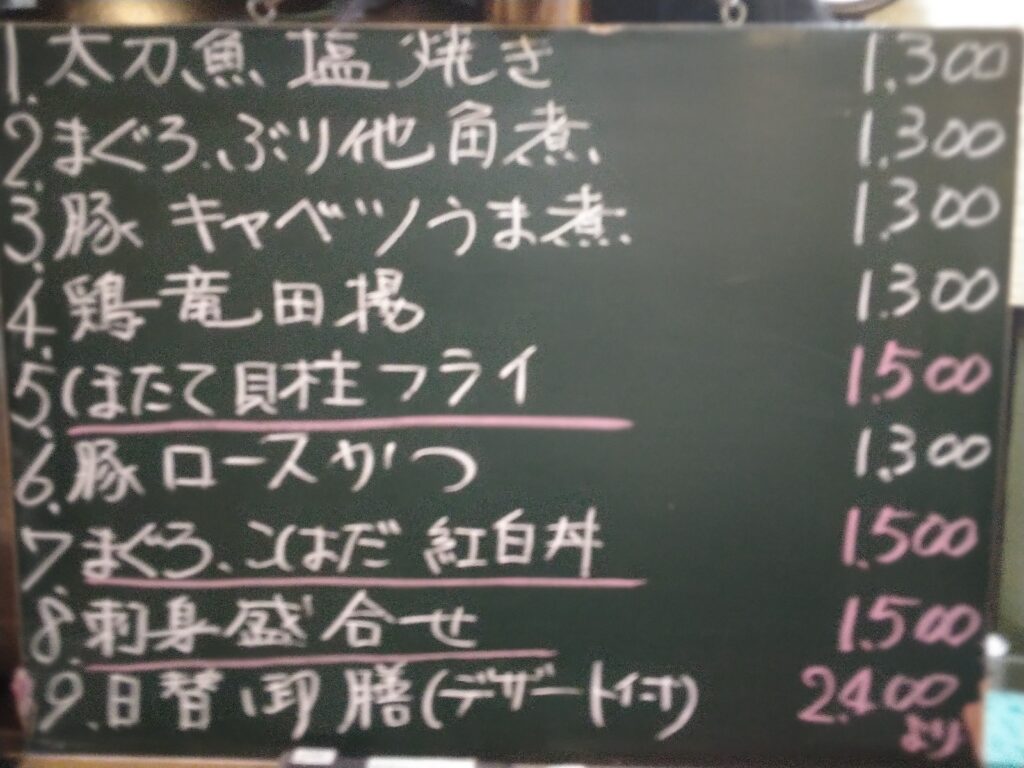 1. 太刀魚 塩焼き 1.300
2. まぐろ、ぶり他 角煮 1.300
3. 豚 キャベツうま煮 1.300
4. 鶏竜田揚 1.300
5. ほたて貝柱フライ 1.500
6. 豚ロースかつ 1.300
7. まぐろ、こはだ 紅白丼 1.500
8. 刺身盛合せ 1.500
9. 日替り御膳(デザート付) 2.400
より